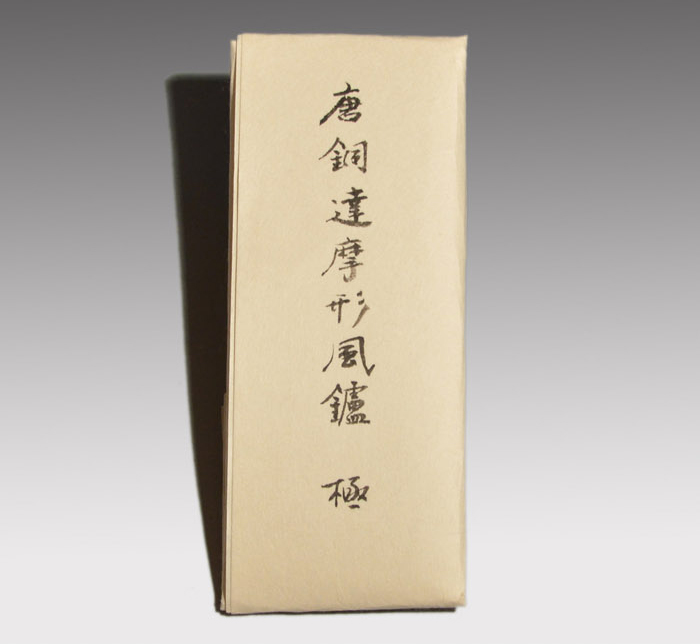 唐銅達摩形風鑪 極